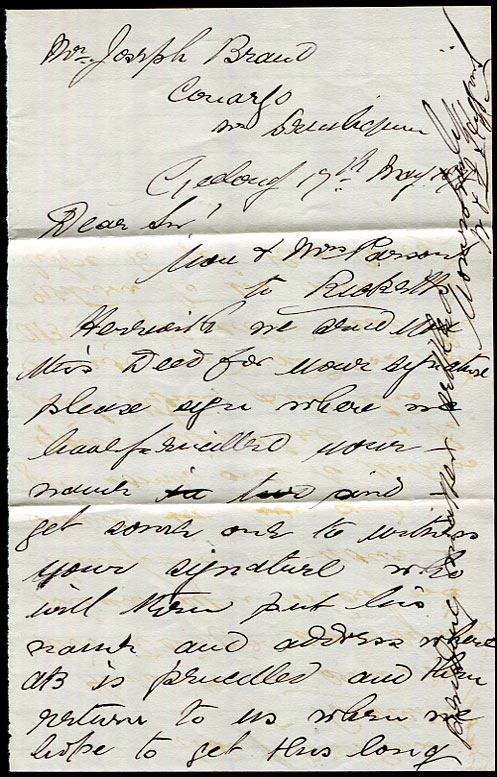 Mr. Joseph Braut
Conargo
nr Deniliquin
Geelong 17th May
Dear Sir
You & Mrs Parson
to Ricketts
Herewith we send you
this Deed for your signature
please sign where we
have pencilled your
name in two and
get some one to witness
your signature who
will then put his
name and address where
AB is pencilled and then
return to us when we
hope to get this long
pending matter settled
Yours truly